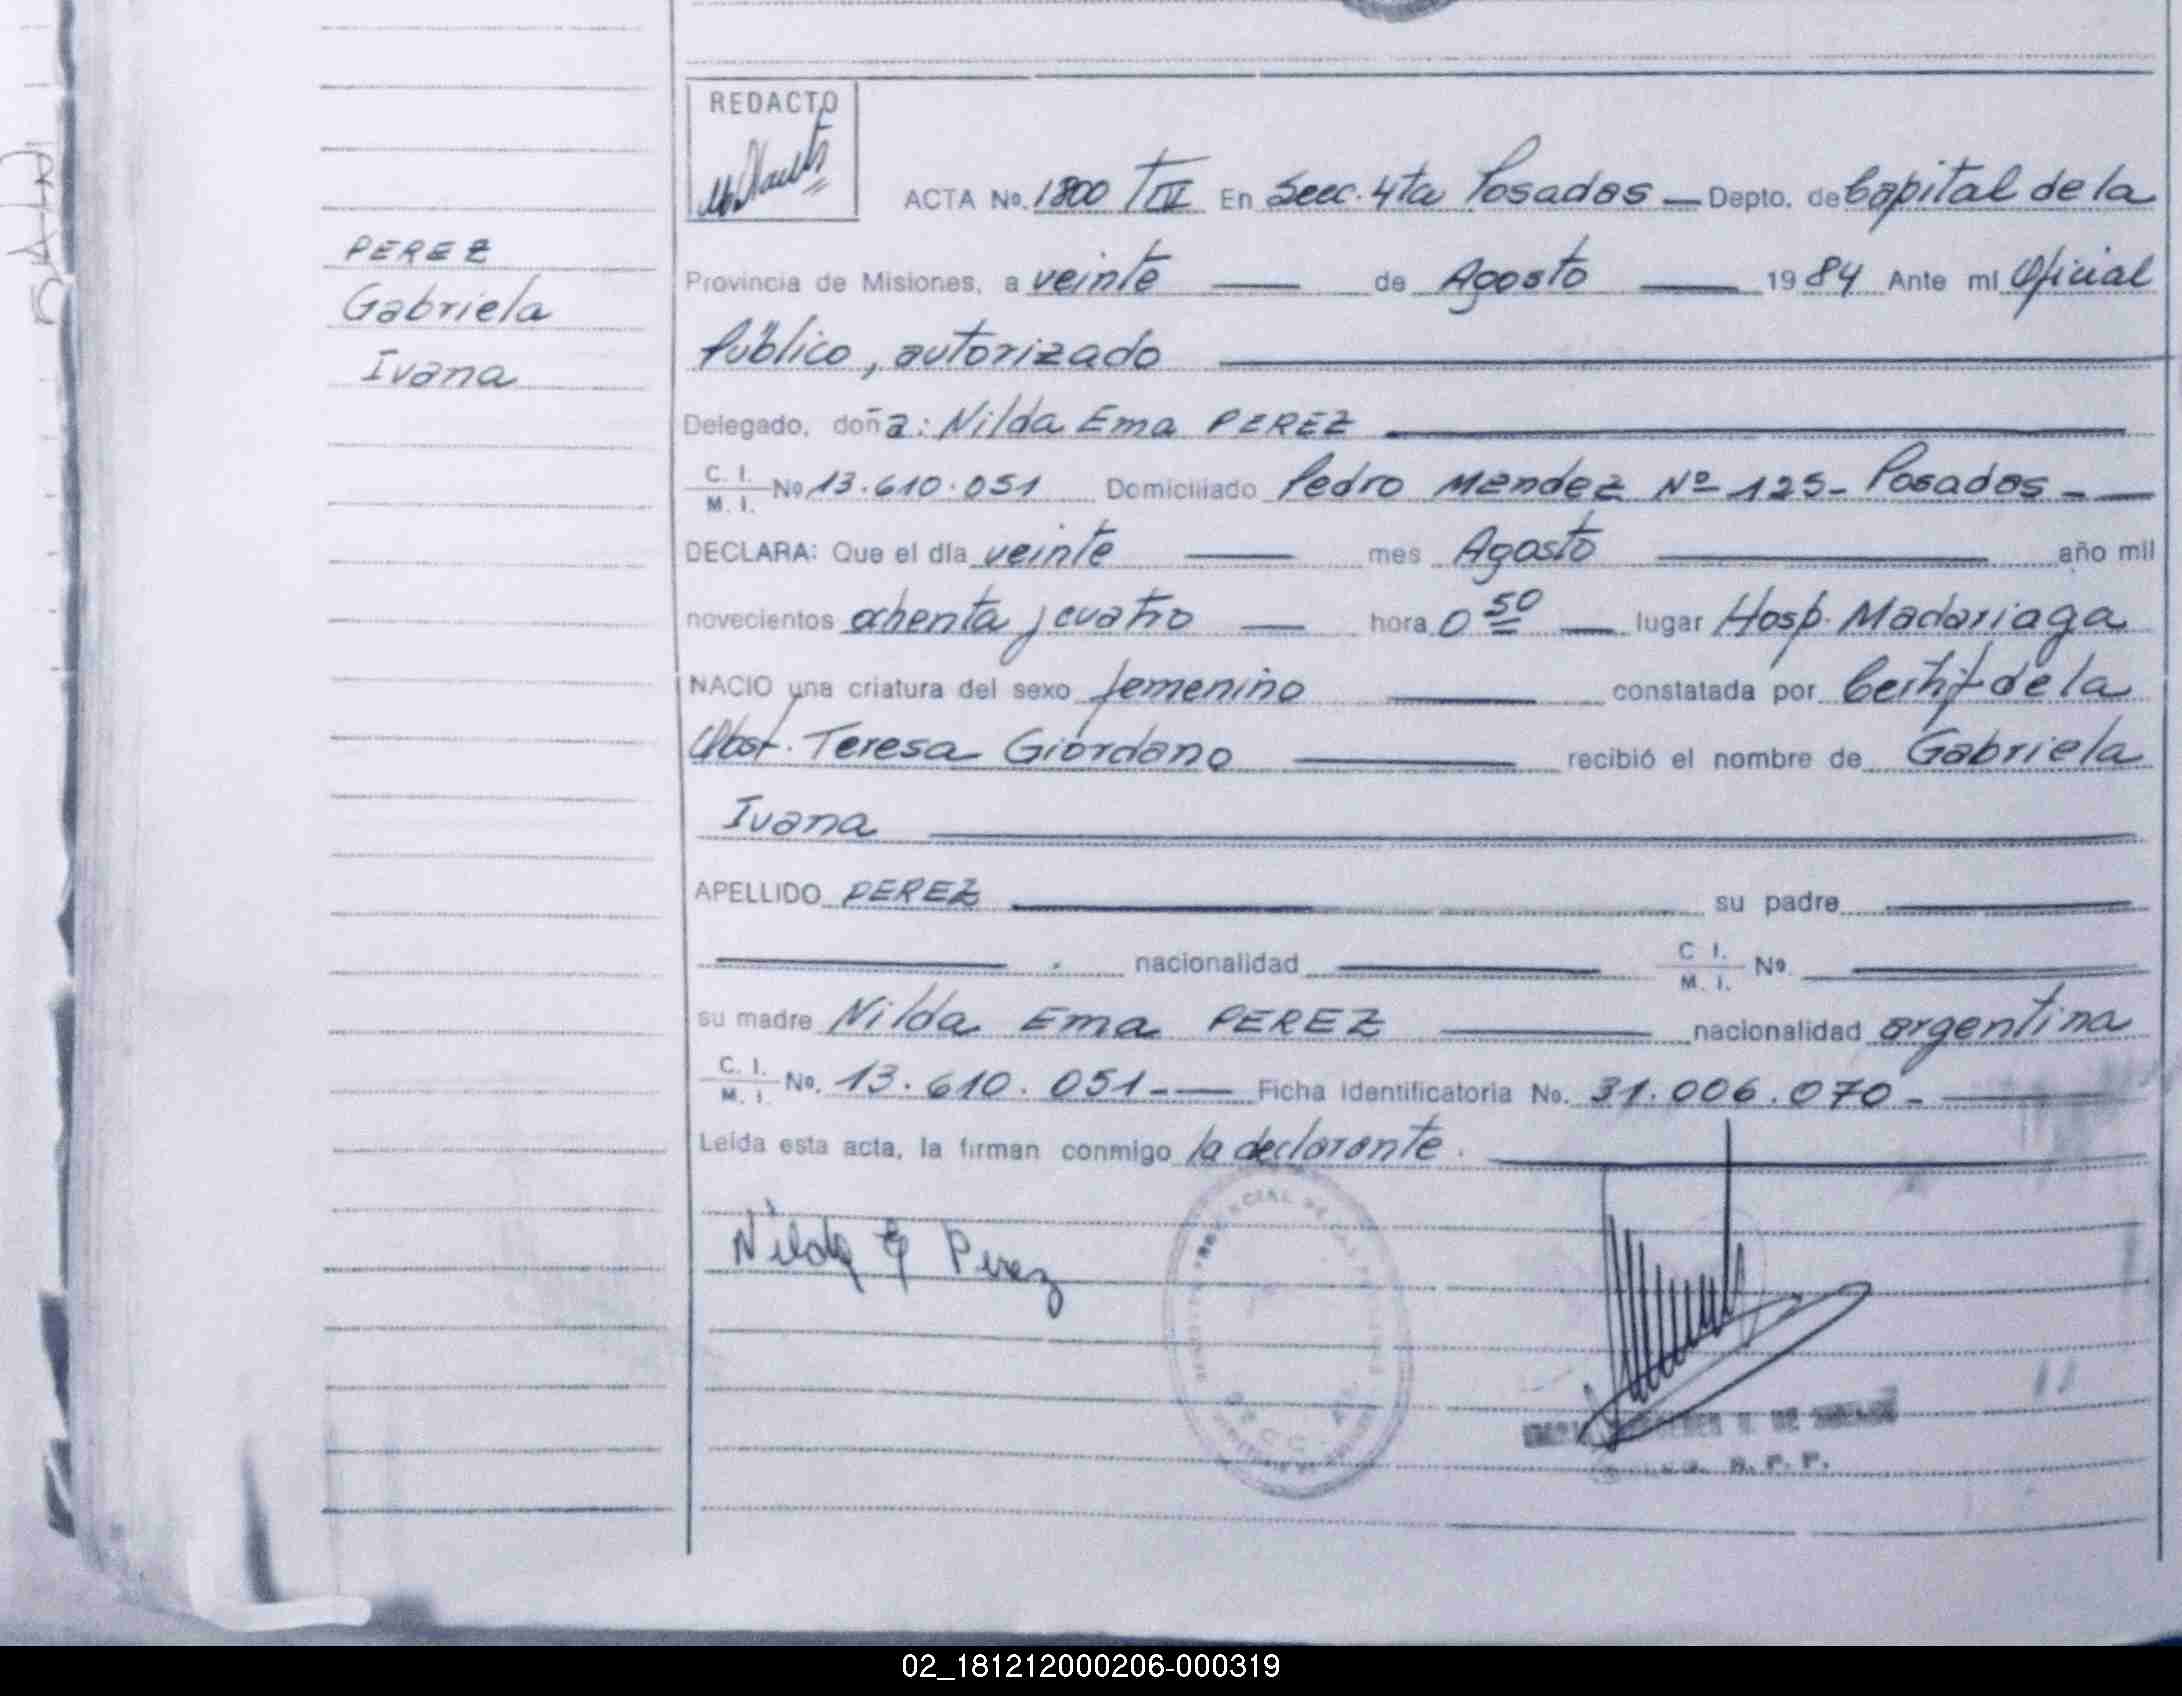 REDACTO
ACTA No. 1800 T IV En Secc. 4ta Posadas — Depto. de Capital de la
PEREZ
Gabriela
Ivana
Provincia de Misiones, a veinte — de Agosto — 1984 Ante mi Oficial
Público, autorizado
Delegado, doña: Nilda Ema PEREZ
C. I.
M. I. No 13.610.051 Domiciliado Pedro Mendez Nº 125 - Posadas - —
DECLARA: Que el día veinte — mes Agosto — año mil
novecientos ochenta y cuatro — hora 0 50 — lugar Hosp. Madariaga
NACIO una criatura del sexo femenino — constatada por Certif. de la
Obst. Teresa Giordano — recibió el nombre de Gabriela
Ivana
APELLIDO PEREZ — su padre —
— nacionalidad — C I. M. I. No —
su madre Nilda Ema PEREZ — nacionalidad argentina
C. I.
M. I. No. 13.610.051 - — Ficha Identificatoria No. 31.006.070 - —
Leída esta acta, la firman conmigo la declarante.
Nilda E Perez
DE
SECC.
R. P. P.
02_181212000206-000319